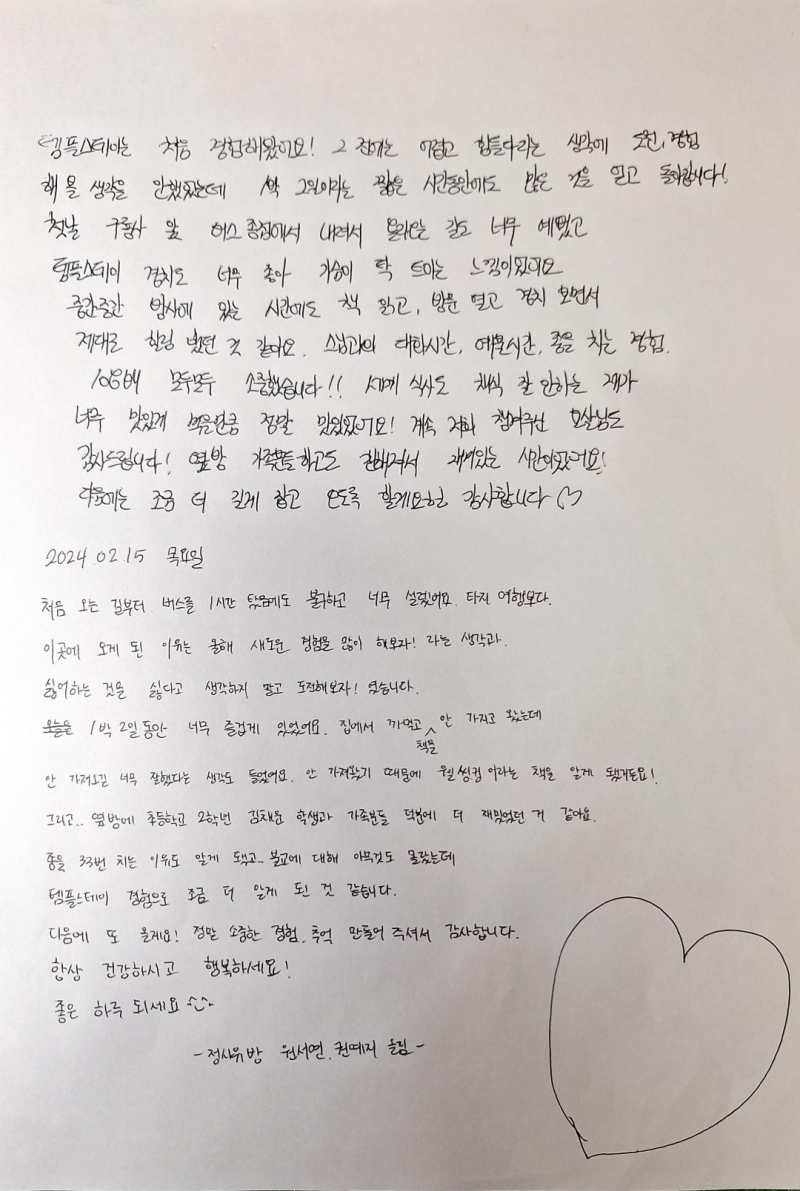 템플스테이는 처음 경험해왔어요! 그 전에는 어렵고 힘들다라는 생각에 도전, 경험
해 볼 생각을 안했었는데 1박 2일이라는 짧은 시간동안에도 많은 것을 얻고 돌아갑니다!
첫날 구룡사 앞 버스 종점에서 내려서 올라오는 길도 너무 예뻤고
템플스테이 경치도 너무 좋아 가슴이 탁 트이는 느낌이었어요
중간중간 방사에 있는 시간에도 책 읽고, 방문 열고 경치 보면서
제대로 힐링 했던 것 같아요. 스님과의 대화시간, 예불시간, 종을 치는 경험.
108배 모두모두 소중했습니다!! 세끼 식사도 채식 잘 안하는 제가
너무 맛있게 먹은만큼 정말 맛있었어요! 계속 저희 챙겨주신 보살님도
감사드립니다! 옆방 가족분들하고도 친해져서 재미있는 시간이었어요!
다음에는 조금 더 길게 잡고 오도록 할게요헌 감사합니다 ♡
2024. 02. 15 목요일
처음 오는 길부터. 버스를 1시간 탔음에도 불구하고 너무 설렜어요. 타지 여행보다.
이곳에 오게 된 이유는 올해 새로운 경험을 많이 해보자! 라는 생각과.
싫어하는 것을 싫다고 생각하지 말고 도전해보자! 였습니다.
오늘은 1박 2일동안 너무 즐겁게 있었어요. 집에서 까먹고 책을 안 가지고 왔는데
안 가져오길 너무 잘했다는 생각도 들었어요. 안 가져왔기 때문에 웰씽킹 이라는 책을 알게 됐거든요!
그리고.. 옆방에 초등학교 2학년 김채윤 학생과 가족분들 덕분에 더 재밌었던 거 같아요.
종을 33번 치는 이유도 알게 됐고.. 불교에 대해 아무것도 몰랐는데
템플스테이 경험으로 조금 더 알게 된 것 같습니다.
다음에 또 올게요! 정말 소중한 경험, 추억 만들어 주셔서 감사합니다.
항상 건강하시고 행복하세요!
좋은 하루 되세요 ^^
- 정사유방 원서연, 권예지 올림 -